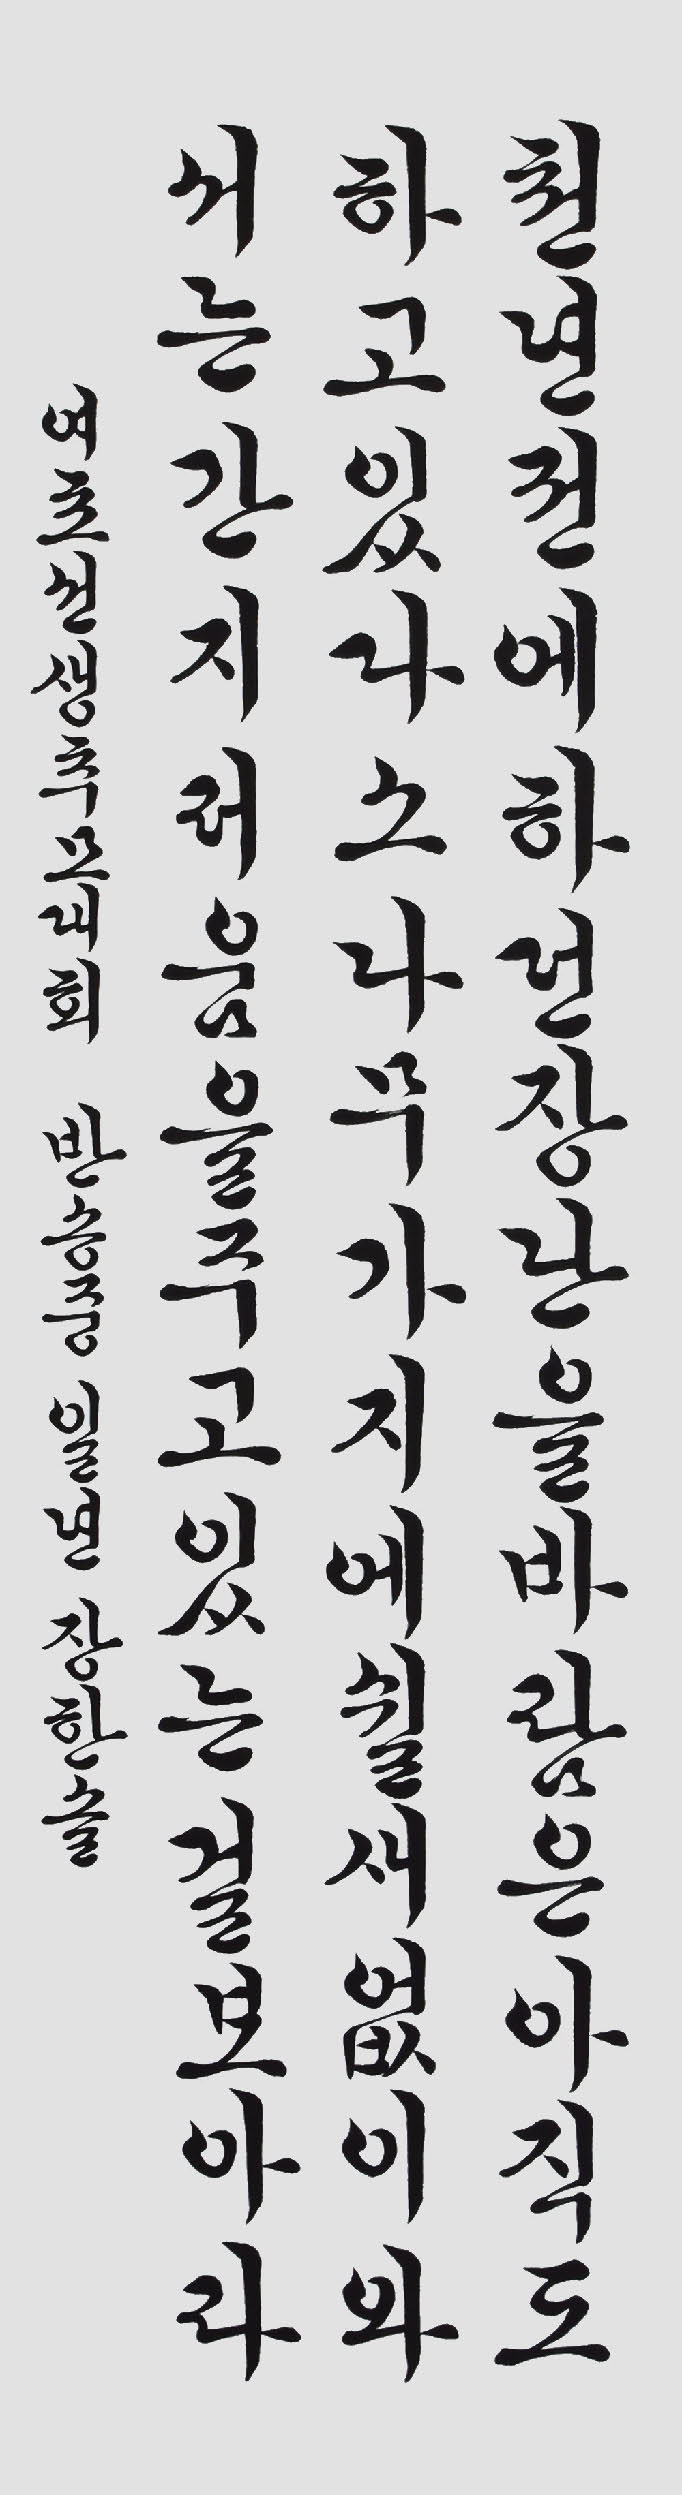 천년전에하던장난을바람은아직도
하고있나소나무가지에쉴새없이와
서는간지러움을주고있는걸보아라
여초선생추모대회 반송중 일년 장한솔